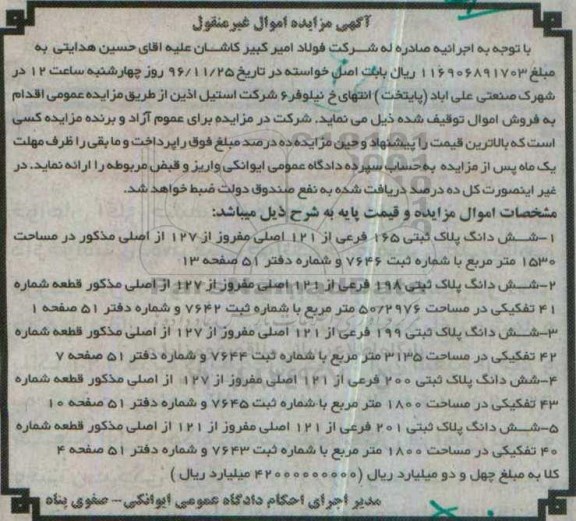 آگهی مزایده اموال غیرمنقول
با توجه به اجرائیه صادره له شرکت فولاد امیر کبیر کاشان علیه اقای حسین هدایتی به
مبلغ ۱۱۶۹۰۶۸۹۱۷۰۳ ریال بابت اصل خواسته در تاریخ ۹۶/۱۱/۲۵ روز چهارشنبه ساعت ۱۲ در
شهرک صنعتی علی اباد (پایتخت) انتهای خ نیلوفر۶ شرکت استیل اذین از طریق مزایده عمومی اقدام
به فروش اموال توقیف شده ذیل می نماید. شرکت در مزایده برای عموم آزاد و برنده مزایده کسی
است که بالاترین قیمت را پیشنهاد و حین مزایده ده درصد مبلغ فوق را پرداخت و ما بقی را ظرف مهلت
یک ماه پس از مزایده به حساب سپرده دادگاه عمومی ایوانکی واریز و قبض مربوطه را ارائه نماید. در
غیر اینصورت کل ده درصد دریافت شده به نفع صندوق دولت ضبط خواهد شد.
مشخصات اموال مزایده و قیمت پایه به شرح ذیل میباشد:
۱-شش دانگ پلاک ثبتی ۱۶۵ فرعی از ۱۲۱ اصلی مفروز از ۱۲۷ از اصلی مذکور در مساحت
۱۵۳۰ متر مربع با شماره ثبت ۷۶۴۶ و شماره دفتر ۵۱ صفحه ۱۳
۲-شش دانگ پلاک ثبتی ۱۹۸ فرعی از ۱۲۱ اصلی مفروز از ۱۲۷ از اصلی مذکور قطعه شماره
۴۱ تفکیکی در مساحت ۵۰۷۲/۹۷۶ متر مربع با شماره ثبت ۷۶۴۲ و شماره دفتر ۵۱ صفحه ۱
۳-شش دانگ پلاک ثبتی ۱۹۹ فرعی از ۱۲۱ اصلی مفروز از ۱۲۷ از اصلی مذکور قطعه شماره
۴۲ تفکیکی در مساحت ۳۱۳۵ متر مربع با شماره ثبت ۷۶۴۴ و شماره دفتر ۵۱ صفحه ۷
۴-شش دانگ پلاک ثبتی ۲۰۰ فرعی از ۱۲۱ اصلی مفروز از ۱۲۷ از اصلی مذکور قطعه شماره
۴۳ تفکیکی در مساحت ۱۸۰۰ متر مربع با شماره ثبت ۷۶۴۵ و شماره دفتر ۵۱ صفحه ۱۰
۵-شش دانگ پلاک ثبتی ۲۰۱ فرعی از ۱۲۱ اصلی مفروز از ۱۲۱ از اصلی مذکور قطعه شماره
۴۰ تفکیکی در مساحت ۱۸۰۰ متر مربع با شماره ثبت ۷۶۴۳ و شماره دفتر ۵۱ صفحه ۴
کلا به مبلغ چهل و دو میلیارد ریال (۴۲۰۰۰۰۰۰۰۰۰ میلیارد ریال)
مدیر اجرای احکام دادگاه عمومی ایوانکی- صفوی پناه